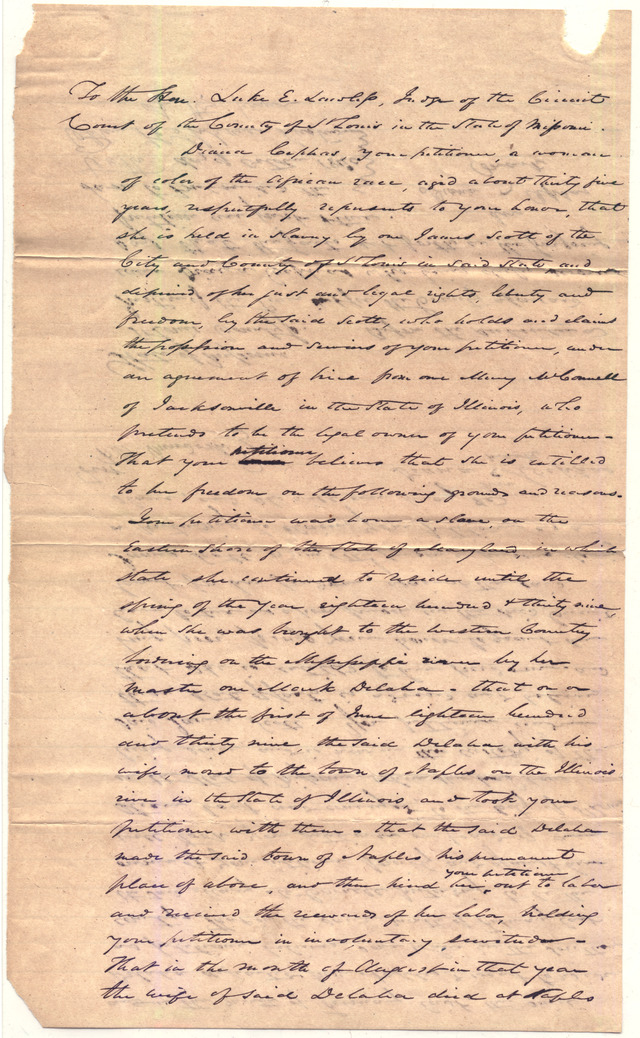 To the Hon. Luke E. Lawless, Judge of the Circuit
Court of the County of St Louis in the State of Missouri.
Diana Cephas, your petitioner, a woman
of color of the African race, aged about thirty five
years, respectfully represents to your honor, that
she is held in slavery by one James Scott of the
City and County of St Louis in said State, and
deprived of her just and legal rights, liberty and
freedom, by the said Scott, who holds and claims
the possession and services of your petitioner, under
an agreement of hire from one Mary McConnell
of Jacksonville in the State of Illinois, who
pretends to be the legal owner of your petitioner -
That your petitioner believes that she is intitled
to her freedom on the following grounds and reasons.
Your petitioner was born a slave, on the
Eastern Shore of the State of Maryland, in which
state she continued to reside until the
spring of the year eighteen hundred & thirty nine,
when she was brought to the western Country
bordering on the Mississippi river by her
master one Mark Delaha - that on or
about the first of June eighteen hundred
and thirty nine, the said Delaha with his
wife, moved to the town of Naples on the Illinois
river in the State of Illinois, and took your
petitioner with them - that the said Delaha
made the said town of Naples his permanent
place of above, and then hired her your petitioner out to labor
and received the rewards of her labor, holding
your petitioner in involuntary servitude -
That in the month of August in that year
the wife of said Delaha died at Naples